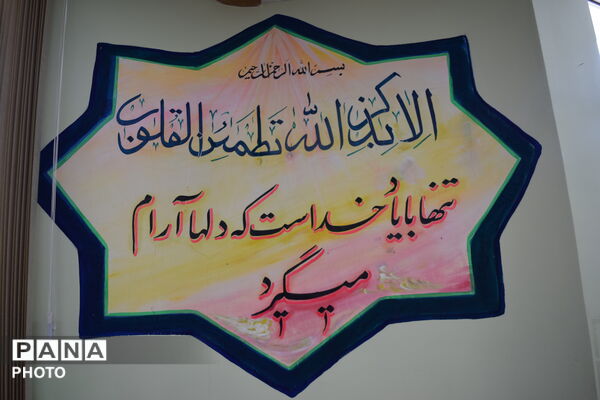 بسم الله الرحمن الرحیم
الا بذکر الله تطمئن القلوب
تنها با یاد خداست که دلها آرام
میگیرد
PANA
PHOTO